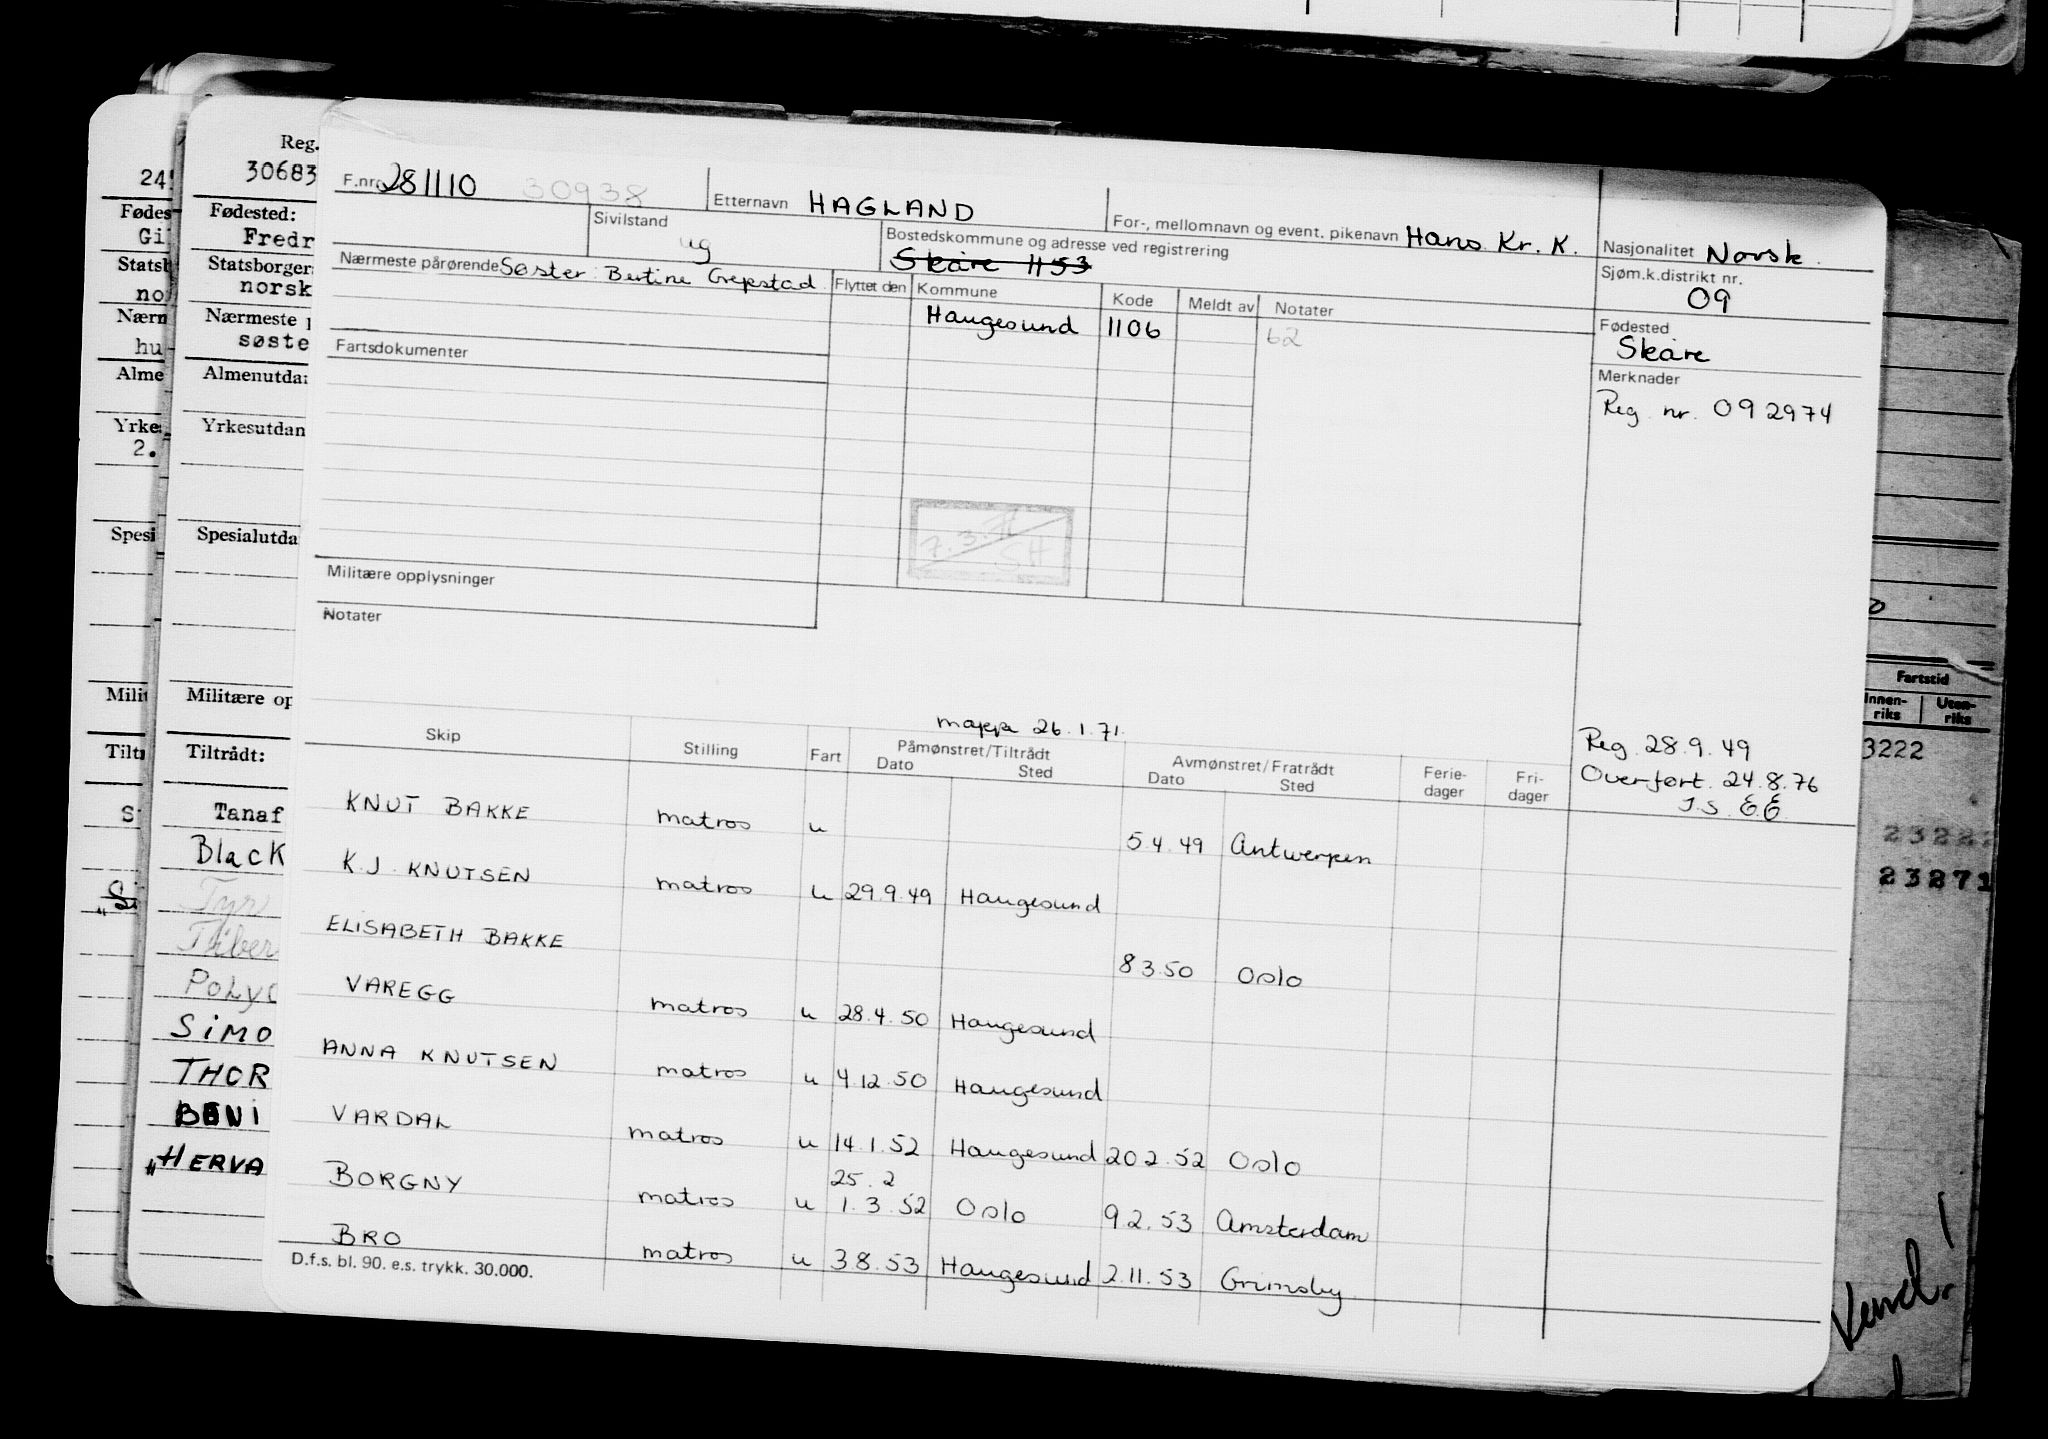 Reg.
30683
24
F.nr. 281110 30938
Etternavn HAGLAND
For-, mellomnavn og event. pikenavn Hans Kr. K.
Nasjonalitet Norsk.
Fødested:
Fredr
Fødes
Gi
Sivilstand
ug
Bostedskommune og adresse ved registrering
Skåre 1153
Sjøm.k.distrikt nr.
09
Statsb
no
Statsborger
norsk
Nærmeste pårørende Søster: Bertine Grepstad
Flyttet den
Kommune
Kode
Meldt av
Notater
Haugesund 1106 62
Fødested
Skåre
Nærm
hu
Nærmeste p
søste
Fartsdokumenter
Merknader
Reg. nr. 092974
Alme
Almenutda
Yrke
2.
Yrkesutdan
Spesi
Spesialutda
7.3.
SH
Militære opplysninger
Notater
Milit
Militære op
Tiltr
Tiltrådt:
mappe 26.1.71.
Reg. 28.9.49
Overført. 24.8.76
J.S. E.E.
Skip
Stilling
Fart
Påmønstret/Tiltrådt
Dato
Sted
Avmønstret/Fratrådt
Dato
Sted
Ferie-
dager
Fri-
dager
KNUT BAKKE matros u 5.4.49 Antwerpen
K.J. KNUTSEN matros u 29.9.49 Haugesund
ELISABETH BAKKE 8.3.50 Oslo
VAREGG matros u 28.4.50 Haugesund
ANNA KNUTSEN matros u 4.12.50 Haugesund
VARDAL matros u 14.1.52 Haugesund 20.2.52 Oslo
25.2
BORGNY matros u 1.3.52 Oslo 9.2.53 Amsterdam
BRO matros u 3.8.53 Haugesund 2.11.53 Grimsby
D.f.s. bl. 90. e.s. trykk. 30.000.
Tanaf
Black
Tyr
Tiber
POLY
SIMO
THOR
BENI
"HERVA
Fartstid
Innen-
riks
Uten-
riks
3222
23271
Vend!